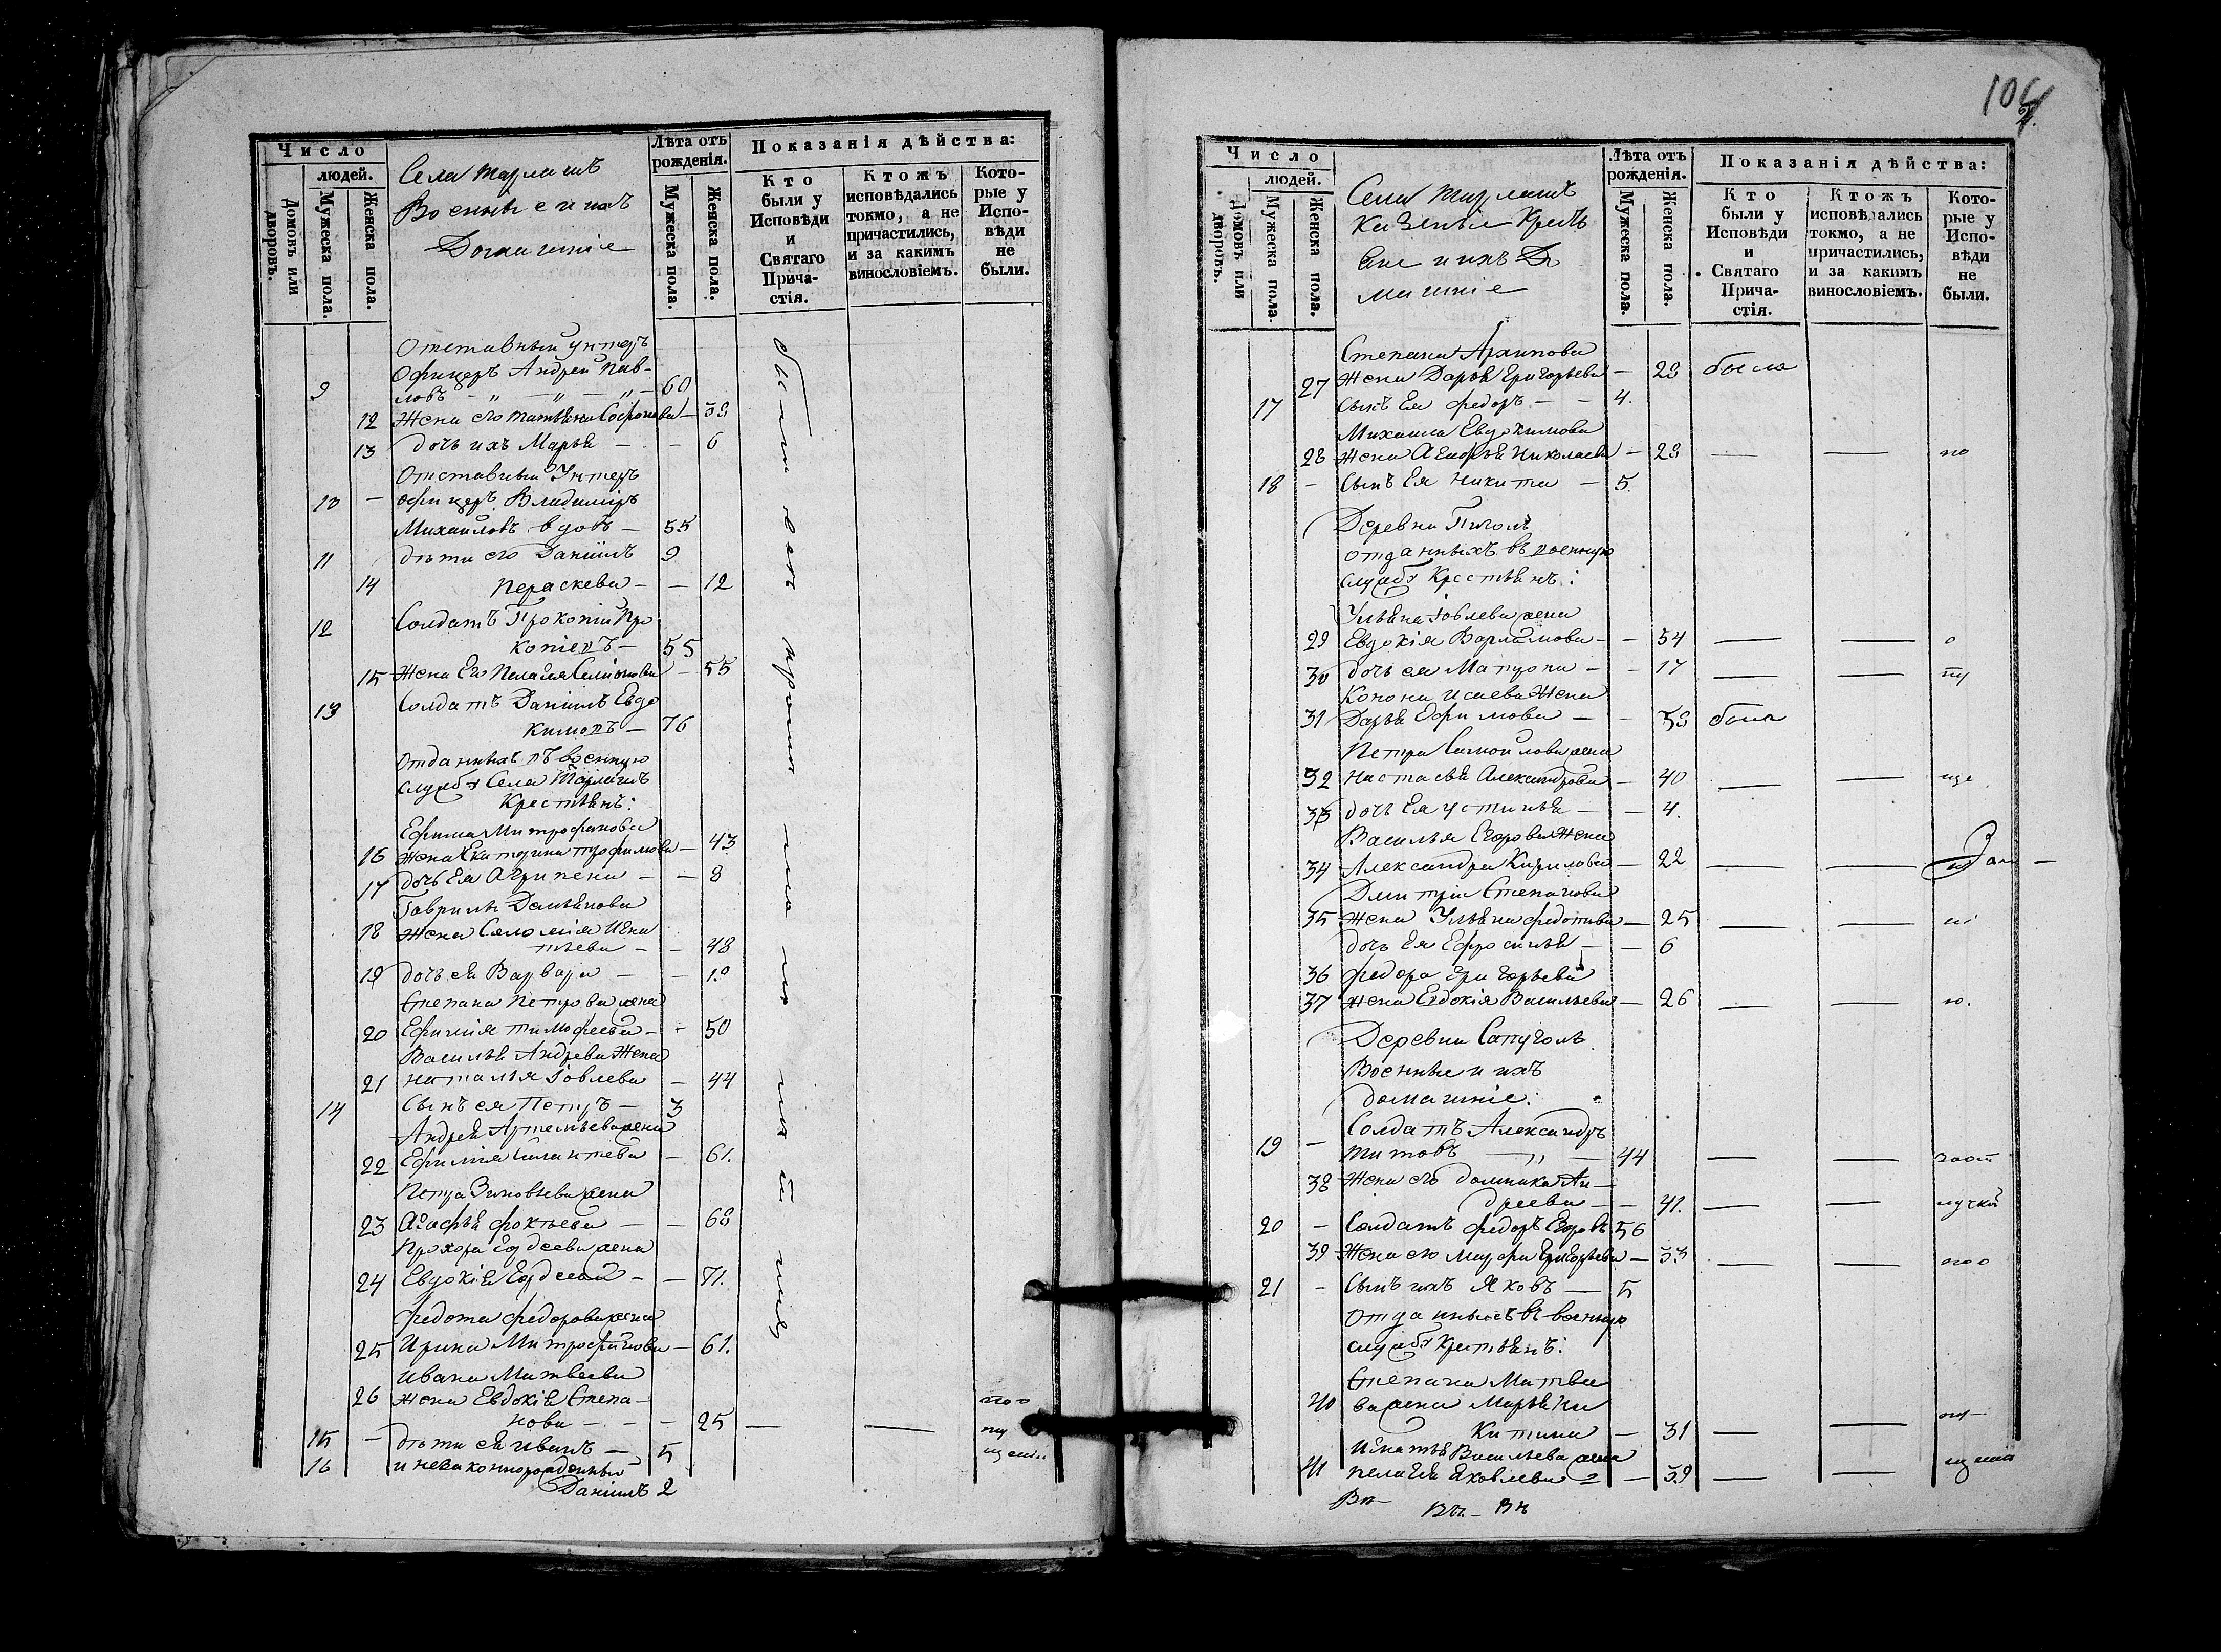 Число
людей.
Домовъ или дворовъ.
Мужеска пола.
Женска пола.
Села
Военные и ихъ
Домашніе
Лѣта отъ рожденія.
Мужеска пола.
Женска пола.
Показанія дѣйства:
Кто были у Исповѣди и Святаго Причастія.
Ктожъ исповѣдались токмо, а не причастились, и за какимъ винословіемъ.
Которые у Исповѣди не были.
Отставный Унтеръ
Офицеръ Андрей Пав-
9 ловъ - „ - „ - „ - 60
12 Жена его Татьяна Софронова - 59
13 дочь ихъ Марья - - 6
Отставный Унтеръ
10 - офицеръ Владиміръ
Михаиловъ вдовъ - 55
11 дѣти его Даніилъ 9
14 Пераскева - - 12
12 Солдатъ Прокопій Про
копіевъ - 55
15 Жена Его Пелагія - 55
13 Солдатъ Даніилъ Евдо
кимовъ - 76
Отданныхъ въ военную
службу Села
Крестьянъ:
Ефима Митрофанова
16 жена Екатерина Трофимова - 43
17 дочь Ея Агрипена - - 8
Гаврилы Демьянова
18 жена Саломія Игна
тьева - - 48
19 дочь ея Варвара - - 19
Степана Петрова жена
20 Ефимія Тимофеева - - 50
Василья Андреева Жена
21 Наталья Іовлева - 44
14 Сынъ ея Петръ - 3
Андрея Артемьева жена
22 Ефимія - 61.
Петра Зиновьева жена
23 Агафья Фоктева - - 68
Прохора жена
24 Евдокія - - 71.
Федота Федорова жена
25 Ирина Митрофанова - 61.
Ивана Матвеева
26 жена Евдокія Степа-
нова - - - 25 — —
15 - дѣти ея Иванъ - 5
16 и незаконнорожденный
Даніилъ 2
104
Число
людей.
Домовъ или дворовъ.
Мужеска пола.
Женска пола.
Села
Казенные Кресть
яне и ихъ До
машніе
Лѣта отъ рожденія.
Мужеска пола.
Женска пола.
Показанія дѣйства:
Кто были у Исповѣди и Святаго Причастія.
Ктожъ исповѣдались токмо, а не причастились, и за какимъ винословіемъ.
Которые у Исповѣди не были.
Степана Архипова
27 Жена Дарья Григорьева - 29 была
17 Сынъ Ея Федоръ - - 4.
Михаила Евдокимова
28 жена Николаева - 29 — — по
18 - Сынъ Ея Никита - 5.
Деревни
Отданныхъ въ военную
службу Крестьянъ:
Ульяна Іовлева жена
29 Евдокія Варламова - - 54 — — о
30 дочь ея Матрона - - 17 — — пу
Конона Исаева Жена
31 Дарья Ефимова - - 39 была
Петра Самойлова жена
32 Настасья Александрова - 40 — — ще
33 дочь Ея Устинья - - 4.
Василья Егорова Жена
34 Александра Кирилова - 22 — —
Дмитрія Степанова
35 жена Ульяна Федотова - 25 — —
дочь Ея Ефросинья - - 6
36 Федора Григорьева
37 жена Евдокія Васильева - 26 — — ю.
Деревни
Военные и ихъ
домашніе:
Солдатъ Александръ
19 - Титовъ — „ — 44 — —
38 Жена его Домника Ан-
дреева - - 41. — —
20 - Солдатъ Федоръ Егоровъ 56
39 Жена его Григорьева - 53 — —
21 - Сынъ ихъ Яковъ — 5
Отданныхъ въ военную
службу Крестьянъ:
Степана Матвее
40 ва жена Марья Ни
китина - 31 — —
Игнатья Васильева жена
41 Пелагія Яковлева - - 59 — —